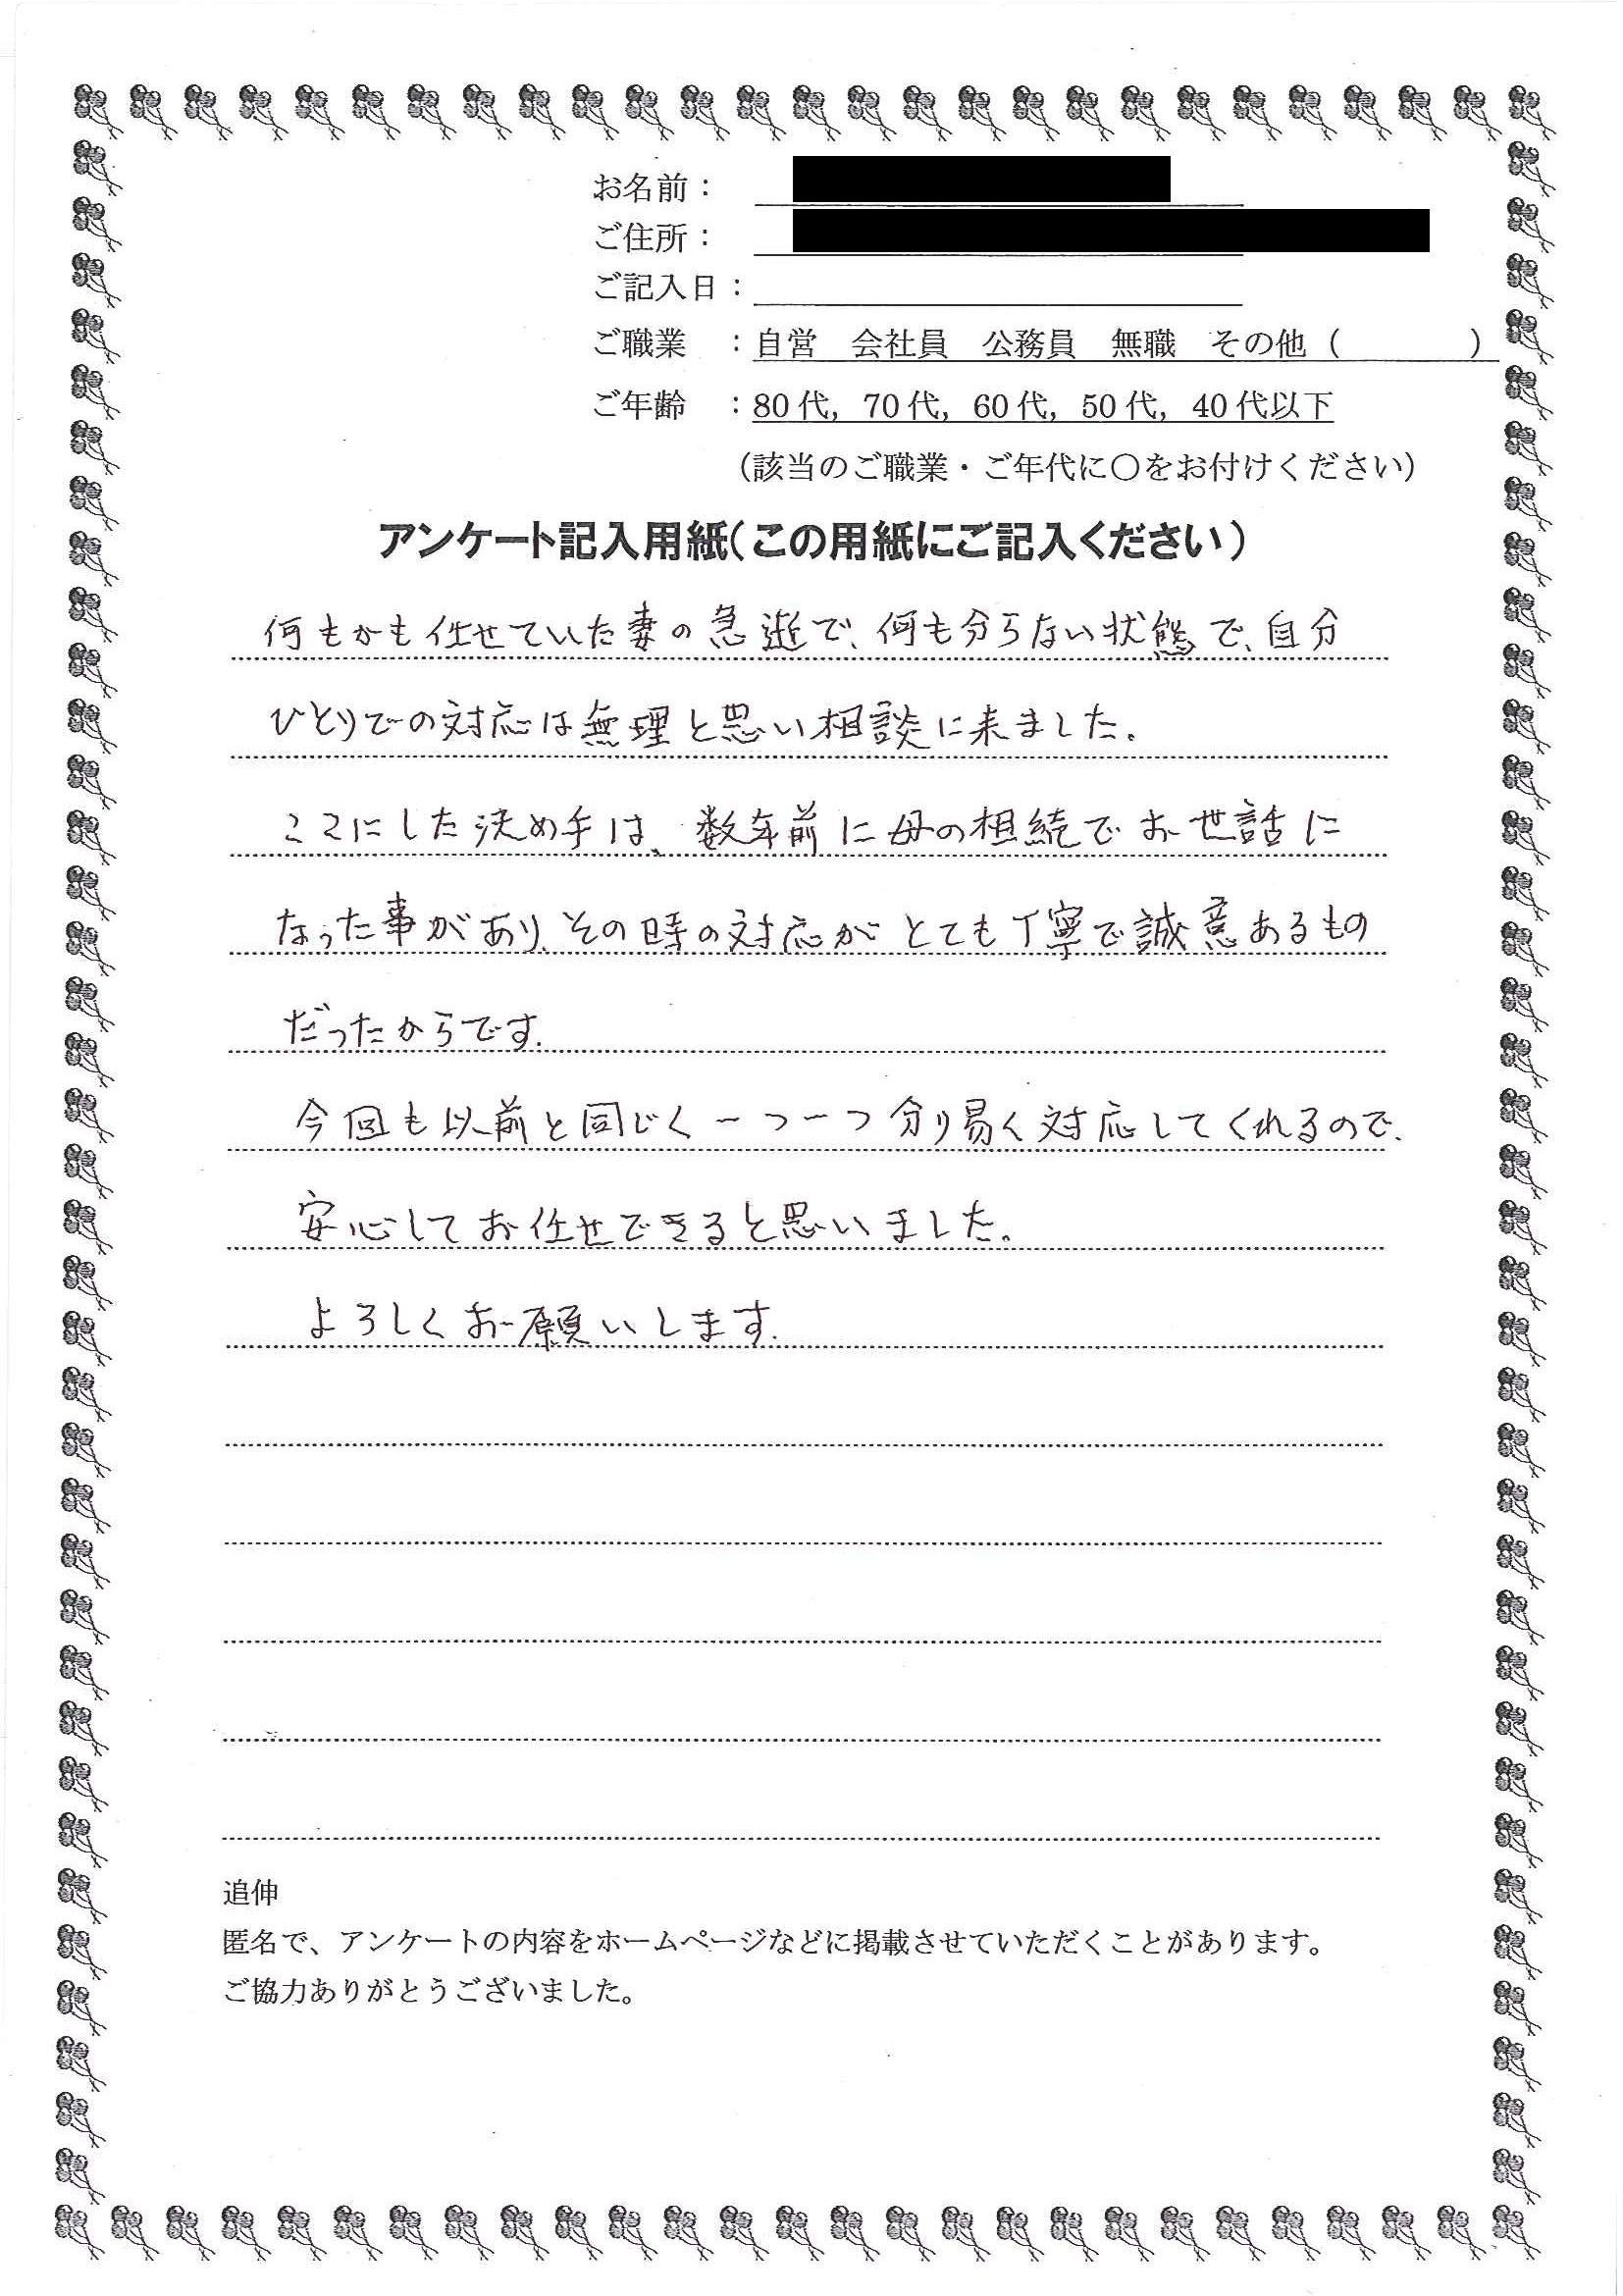 お名前：
ご住所：
ご記入日：
ご職業　：自営　会社員　公務員　無職　その他（　　　　）
ご年齢　：80代，70代，60代，50代，40代以下
（該当のご職業・ご年代に〇をお付けください）
アンケート記入用紙（この用紙にご記入ください）
何もかも任せていた妻の急逝で、何も分らない状態で、自分
ひとりでの対応は無理と思い相談に来ました。
ここにした決め手は、数年前に母の相続でお世話に
なった事があり、その時の対応がとても丁寧で誠意あるもの
だったからです。
今回も以前と同じく一つ一つ分り易く対応してくれるので、
安心してお任せできると思いました。
よろしくお願いします。
追伸
匿名で、アンケートの内容をホームページなどに掲載させていただくことがあります。
ご協力ありがとうございました。